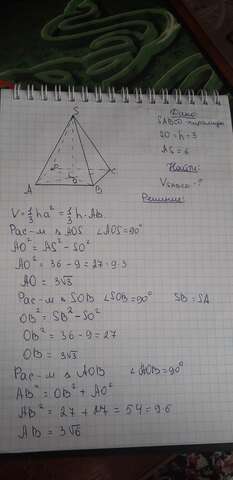 Дано
SABCD пирамида
SO = h = 3
AS = 6
Найти:
V SABCD - ?
Решение:
S
D
C
O
A
B
V = 1/3 ha² = 1/3 h · AB
Рас-м △ AOS ∠AOS = 90°
AO² = AS² - SO²
AO² = 36 - 9 = 27 = 9·3
AO = 3√3
Рас-м △ SOB ∠SOB = 90° SB = SA
OB² = SB² - SO²
OB² = 36 - 9 = 27
OB = 3√3
Рас-м △ AOB ∠AOB = 90°
AB² = OB² + AO²
AB² = 27 + 27 = 54 = 9·6
AB = 3√6